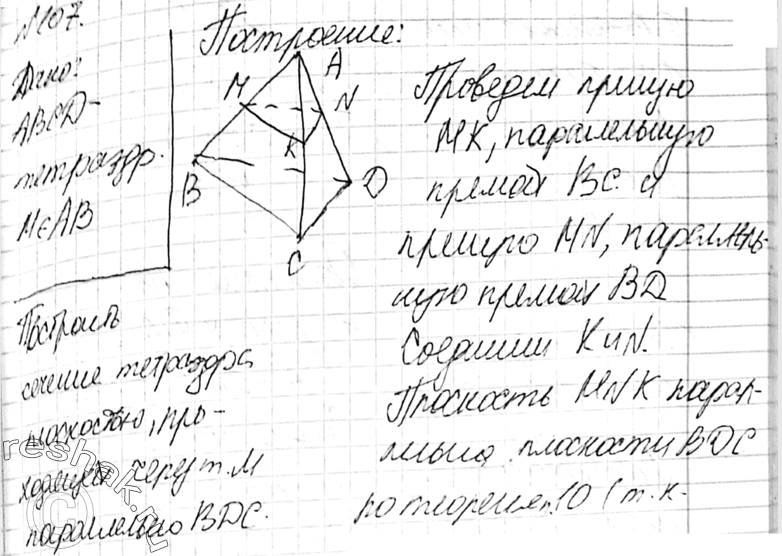 №107.
Дано:
ABCD-
тетраэдр.
M∈AB
Построить
сечение тетраэдра
плоскостью, про-
ходящей через т. M
параллельно BDC.
Построение:
A
M
N
K
B
D
C
Проведем прямую
MK, параллельную
прямой BC и
прямую MN, параллель-
ную прямой BD
Соединим K и N.
Плоскость MNK парал-
лельна плоскости BDC
по теореме п.10 (т.к.
reshak.ru